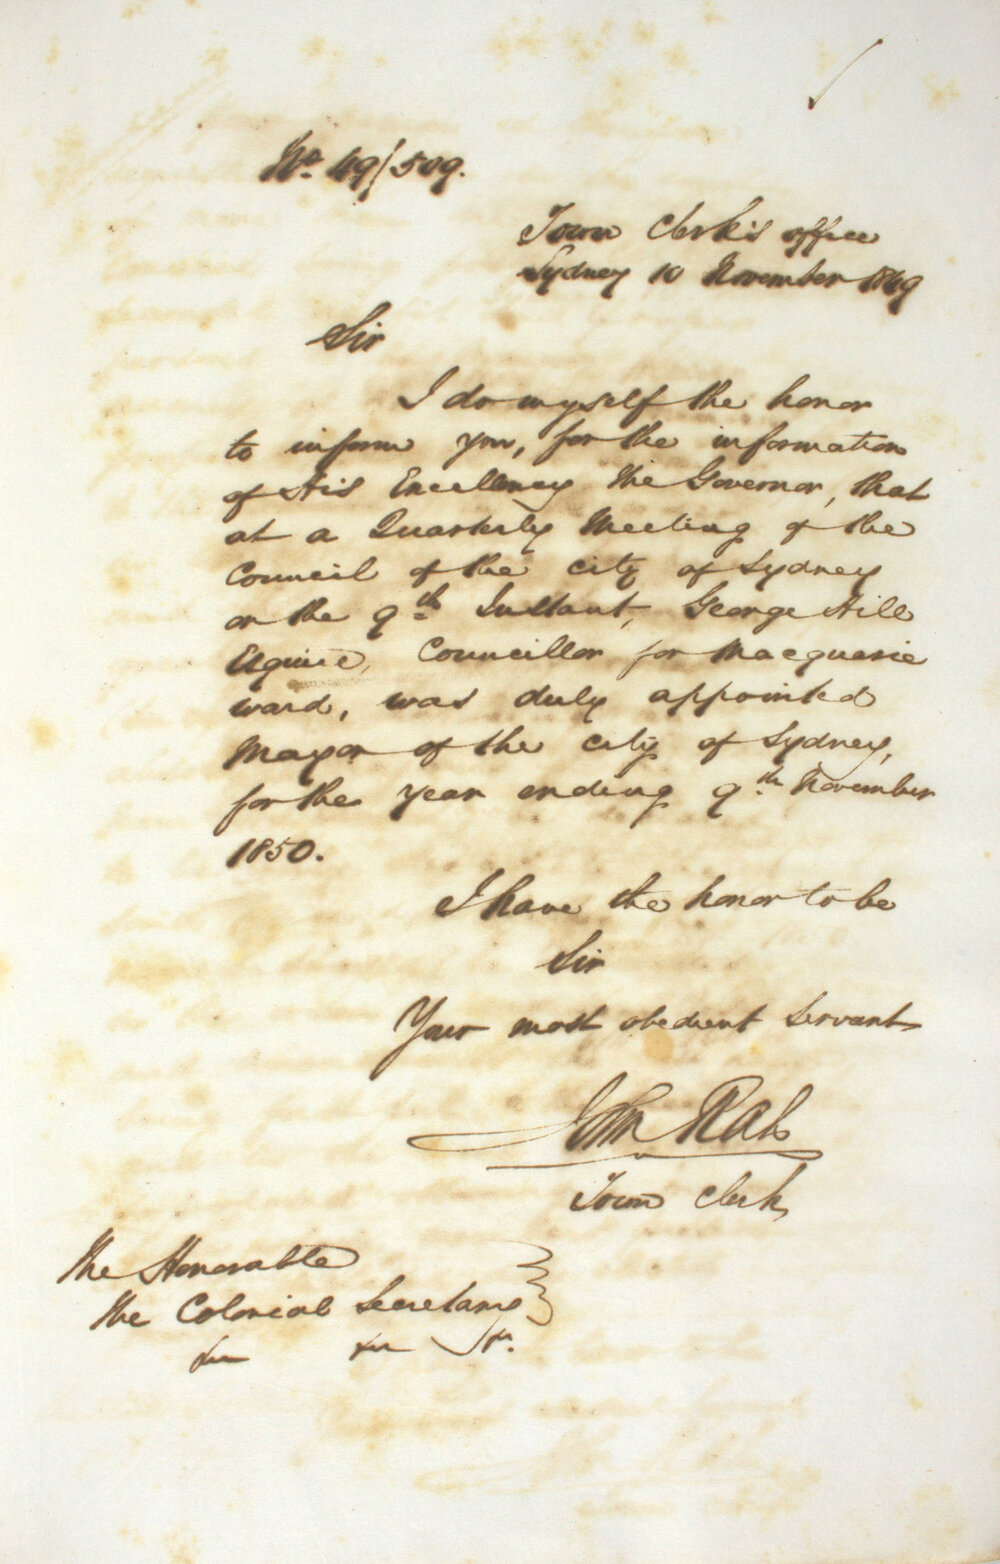 No. 49/509.
Town Clerk's office
Sydney 10 November 1849
Sir
I do myself the honor
to inform you, for the information
of His Excellency the Governor, that
at a Quarterly Meeting of the
Council of the city of Sydney
on the 9th Instant, George Hill
Esquire, Councillor for Macquarie
ward, was duly appointed
Mayor of the city of Sydney,
for the year ending 9th November
1850.
I have the honor to be
Sir
Your most obedient servant
John Rae
Town Clerk
The Honorable
the Colonial Secretary
&c &c &c.